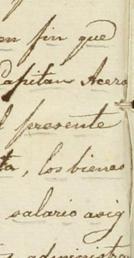 en fin que
Capitan Acero
presente
ta, los bienes
salario asig
administra